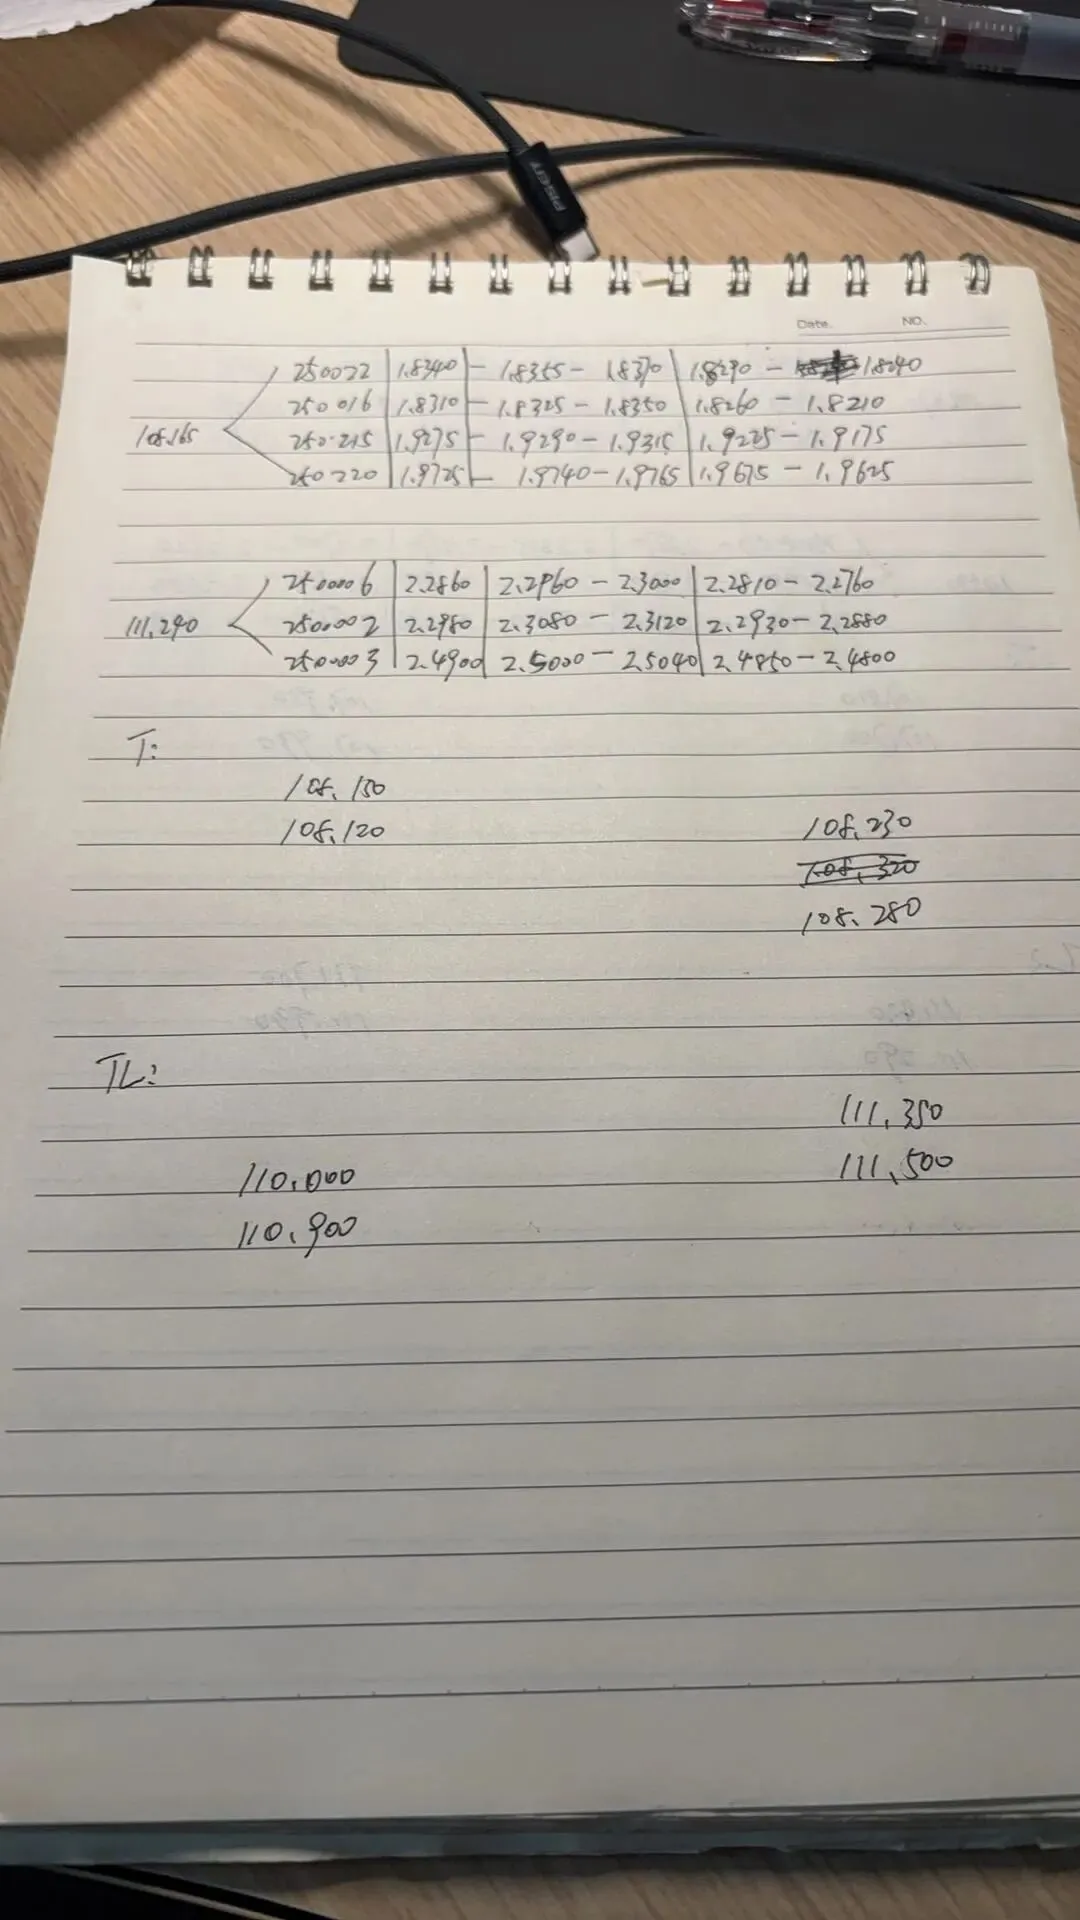 PISEN
Date. NO.
250022 | 1.8340 | - 1.8355 - 1.8370 | 1.8290 - 1.8240
250016 | 1.8310 | - 1.8325 - 1.8350 | 1.8260 - 1.8210
108.165
250215 | 1.9275 | - 1.9290 - 1.9315 | 1.9225 - 1.9175
250220 | 1.9725 | - 1.9740 - 1.9765 | 1.9675 - 1.9625
2500006 | 2.2860 | 2.2960 - 2.3000 | 2.2810 - 2.2760
111.290 2500002 | 2.2980 | 2.3080 - 2.3120 | 2.2930 - 2.2880
2500003 | 2.4900 | 2.5000 - 2.5040 | 2.4850 - 2.4800
T:
108.150
108.120 108.230
108.320
108.280
TL:
111.350
110.000 111.500
110.900